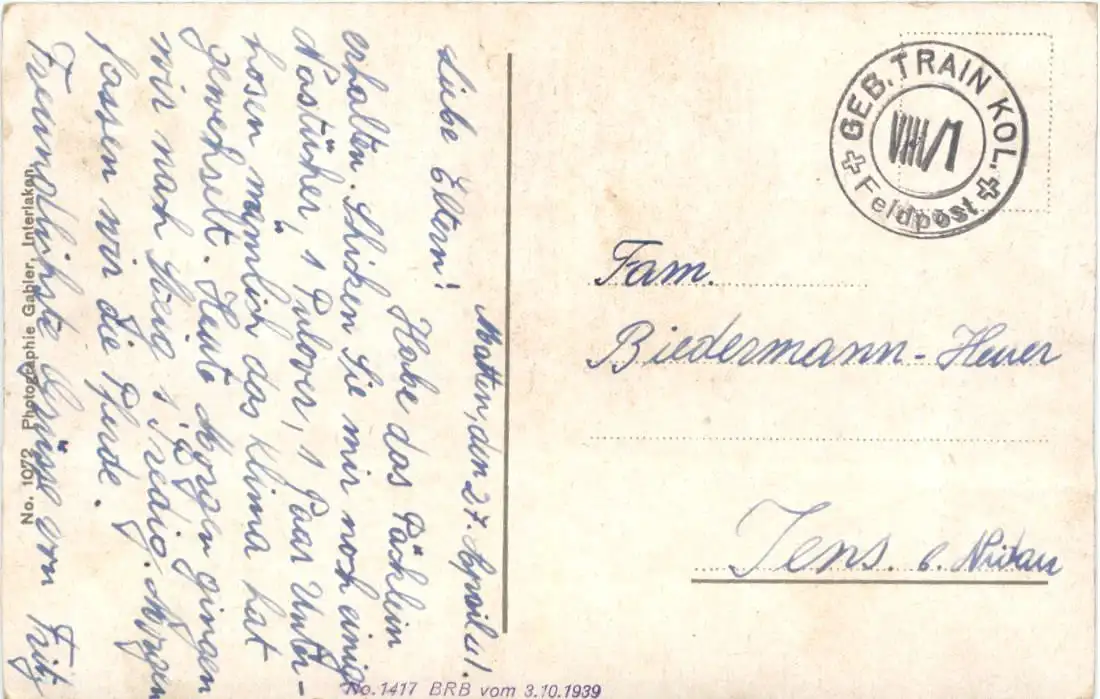 Matten, den 27. April 41.
Liebe Eltern!
Habe das Päcklein
erhalten. Schicken Sie mir noch einig
Nastücher, 1 Pulover, 1 Paar Unter-
hosen nämlich das Klima hat
gewechselt. Heute Morgen gingen
wir nach z Predig. Morgen
fassen wir die Pferde.
Freundlichste Grüsse von Fritz
No. 1072 Photographie Gabler, Interlaken
No.1417 BRB vom 3.10.1939
GEB. TRAIN KOL.
VIII/1
Feldpost
Fam.
Biedermann-Heuer
Jens. b. Nidau